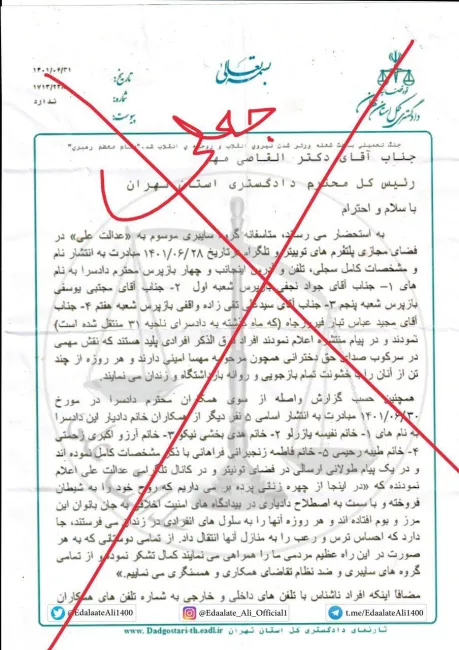 بسمه تعالی
قوه قضاییه
دادگستری کل استان تهران
تاریخ: ۱۴۰۱/۰۶/۳۱
شماره:
پیوست: ندارد
جعلی
جناب آقای دکتر القاصی
رئیس کل محترم دادگستری استان تهران
با سلام و احترام
به استحضار می رساند، متاسفانه گروه سایبری موسوم به «عدالت علی» در
فضای مجازی پلتفرم های توییتر و تلگرام در تاریخ ۱۴۰۱/۰۶/۲۸ مبادرت به انتشار نام
و مشخصات کامل سجلی، تلفن و آدرس اینجانب و چهار بازپرس محترم دادسرا به نام
های ۱- جناب آقای جواد نجفی بازپرس شعبه اول ۲- جناب آقای مجتبی یوسفی
بازپرس شعبه پنجم ۳- جناب آقای سیدعلی تقی زاده واقفی بازپرس شعبه هفتم ۴- جناب
آقای مجید عباس تبار فیروزجاه (که ماه گذشته به دادسرای ناحیه ۳۱ منتقل شده است)
نمودند و در پیام منتشره اعلام نمودند افراد فوق الذکر افرادی پلید هستند که نقش مهمی
در سرکوب صدای حق دخترانی همچون مرحومه مهسا امینی دارند و هر روزه از چند
تن از آنان را با خشونت تمام بازجویی و روانه بازداشتگاه و زندان می نمایند.
همچنین حسب گزارش واصله از سوی همکاران محترم دادسرا در مورخ
۱۴۰۱/۰۶/۳۰ مبادرت به انتشار اسامی ۵ نفر دیگر از همکاران خانم دادیار این دادسرا
به نام های ۱- خانم نفیسه یازرلو ۲- خانم ندی بخشی نیکو ۳- خانم آرزو اکبری زحمتی
۴- خانم طیبه رحیمی ۵- خانم فاطمه زنجیرانی فراهانی با ذکر مشخصات کامل نموده اند
و در یک پیام طولانی ارسالی در فضای توئیتر و در کانال تلگرامی عدالت علی اعلام
نمودنده که «در اینجا از چهره زنانی پرده بر می داریم که روح خود را به شیطان
فروخته و با سمت به اصطلاح دادیاری در بیدادگاه های امنیت اخلاقی به جان بانوان این
مرز و بوم افتاده اند و هر روزه آنها را به سلول های انفرادی در زندان می فرستند، جا
دارد که احساس ترس و رعب را به منازل آنها انتقال داد. از تمامی دوستانی که به هر
صورت در این راه عظیم مردمی ما را همراهی می نمایند کمال تشکر نموده و از تمامی
گروه های سایبری و ضد نظام تقاضای همکاری و همسنگری می نماییم.»
مضافا اینکه افراد ناشناس با تلفن های داخلی و خارجی به شماره تلفن های همکاران
@EdaalateAli1400
@Edaalate_Ali_Official1
t.me/EdaalateAli1400
تارنمای دادگستری کل استان تهران www.Dadgostari-th.eadl.ir